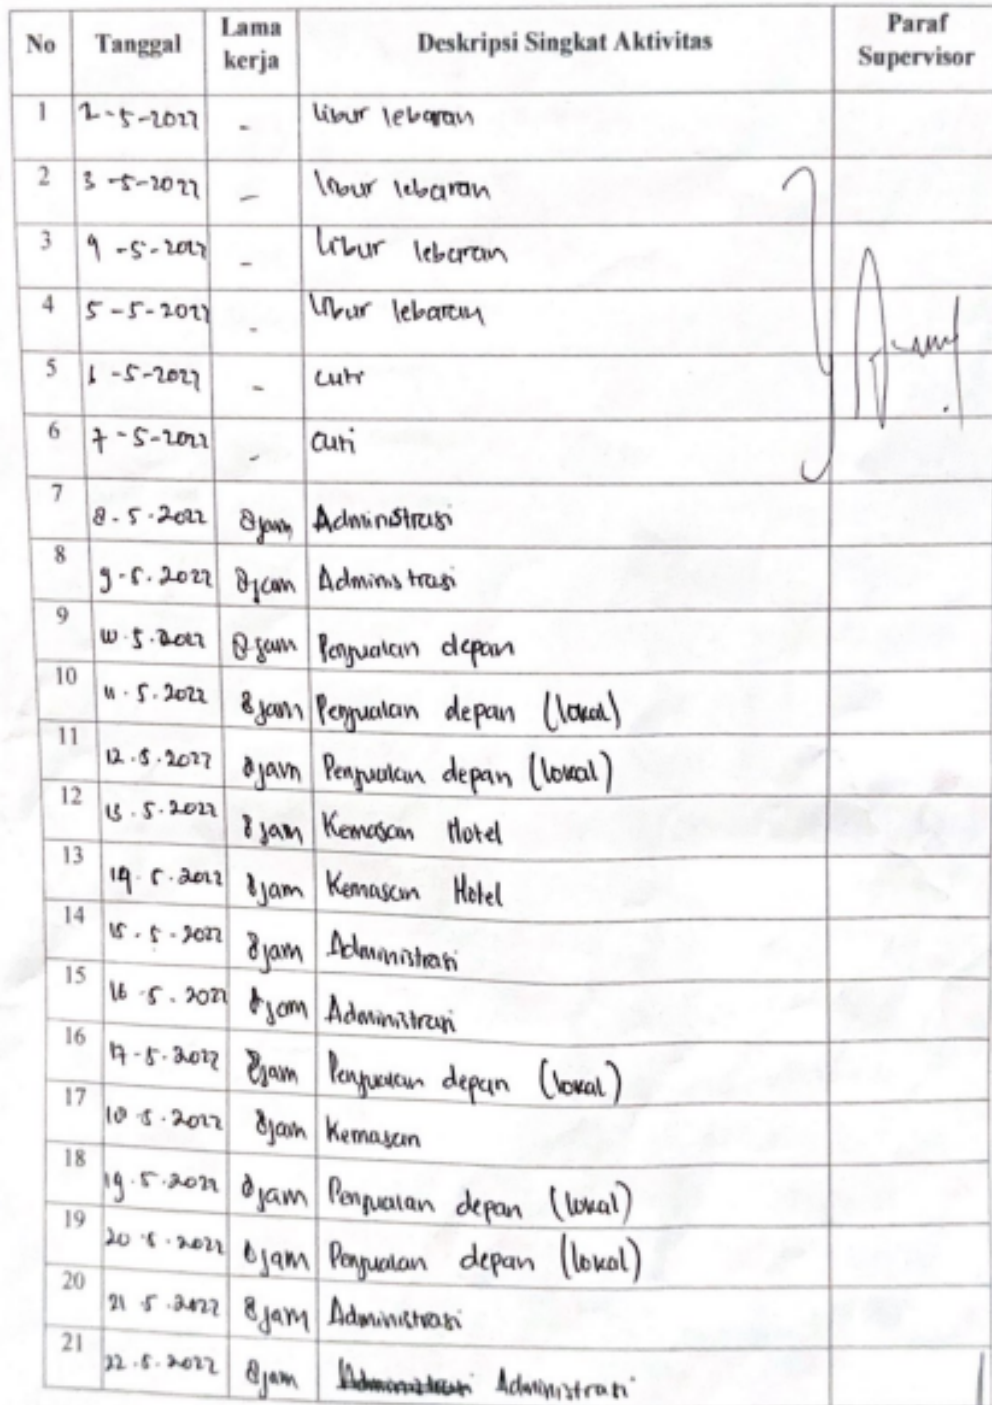 No Tanggal Lama kerja Deskripsi Singkat Aktivitas Paraf Supervisor
1 2-5-2022 - libur lebaran
2 3-5-2022 - libur lebaran
3 4-5-2022 - libur lebaran
4 5-5-2022 - libur lebaran
5 6-5-2022 - cuti
6 7-5-2022 - cuti
7 8.5.2022 8jam Administrasi
8 9.5.2022 8jam Administrasi
9 10.5.2022 8jam Penjualan depan
10 11.5.2022 8jam Penjualan depan (lokal)
11 12.5.2022 8jam Penjualan depan (lokal)
12 13.5.2022 8jam Kemasan Hotel
13 14.5.2022 8jam Kemasan Hotel
14 15.5.2022 8jam Administrasi
15 16.5.2022 8jam Administrasi
16 17-5.2022 8jam Penjualan depan (lokal)
17 18.5.2022 8jam Kemasan
18 19.5.2022 8jam Penjualan depan (lokal)
19 20.5.2022 8jam Penjualan depan (lokal)
20 21.5.2022 8jam Administrasi
21 22.5.2022 8jam Administrasi